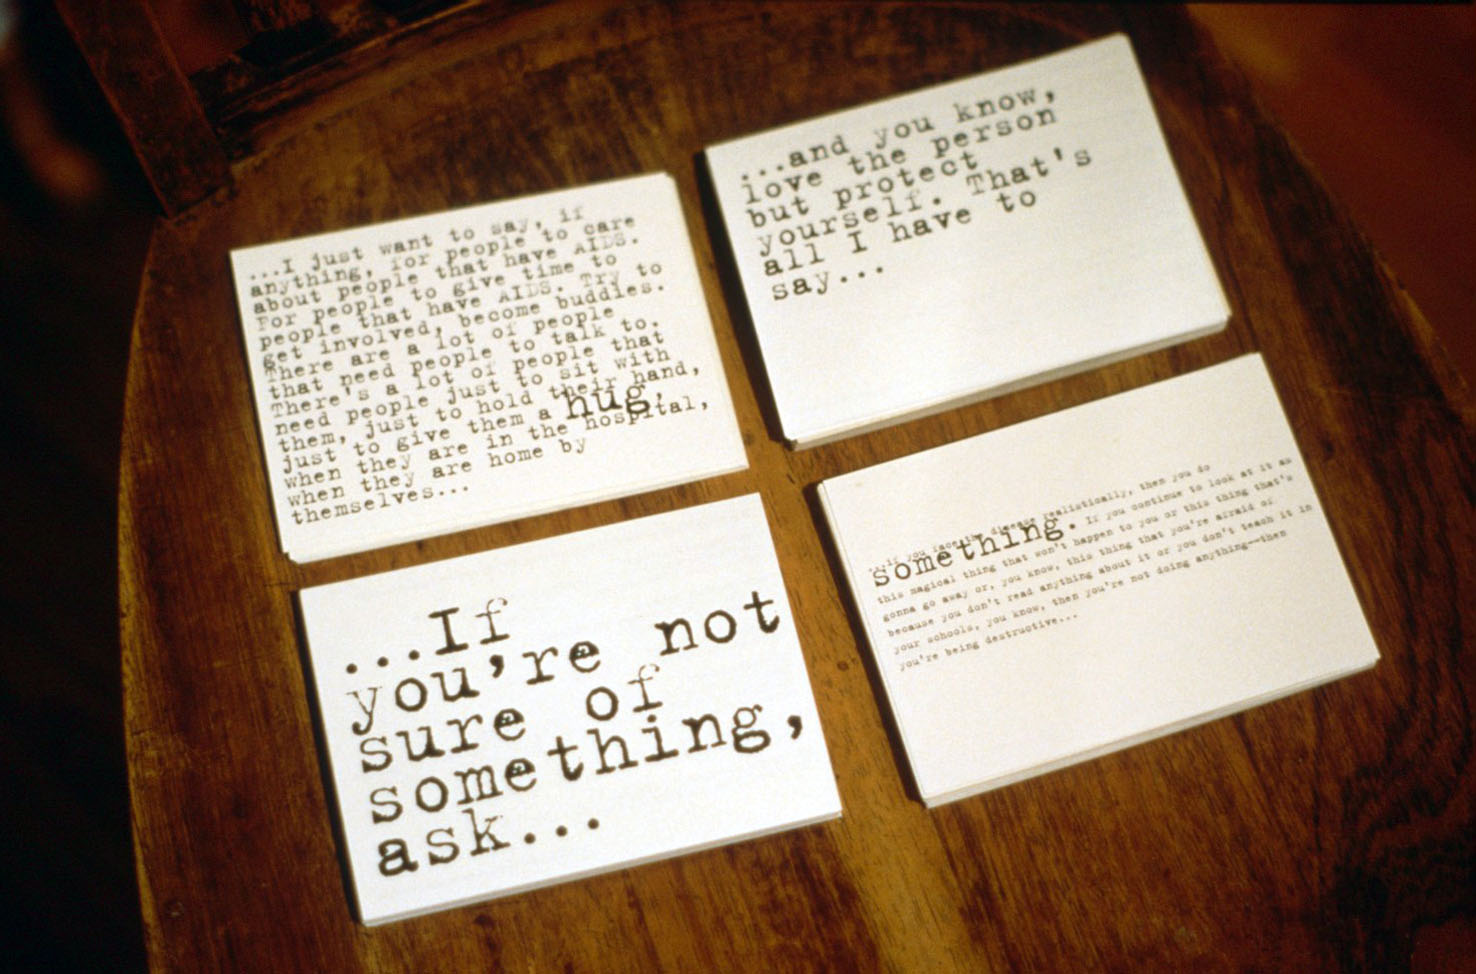 ...I just want to say, if
anything, for people to care
about people that have AIDS.
For people to give time to
people that have AIDS. Try to
get involved, become buddies.
There are a lot of people
that need people to talk to.
There's a lot of people that
need people just to sit with
them, just to hold their hand,
just to give them a hug,
when they are in the hospital,
when they are home by
themselves...
...and you know,
love the person
but protect
yourself. That's
all I have to
say...
...If
you're not
sure of
something,
ask...
...if you face the disease realistically, then you do
something. If you continue to look at it as
this magical thing that won't happen to you or this thing that's
gonna go away or, you know, this thing that you're afraid of
because you don't read anything about it or you don't teach it in
your schools, you know, then you're not doing anything--then
you're being destructive...